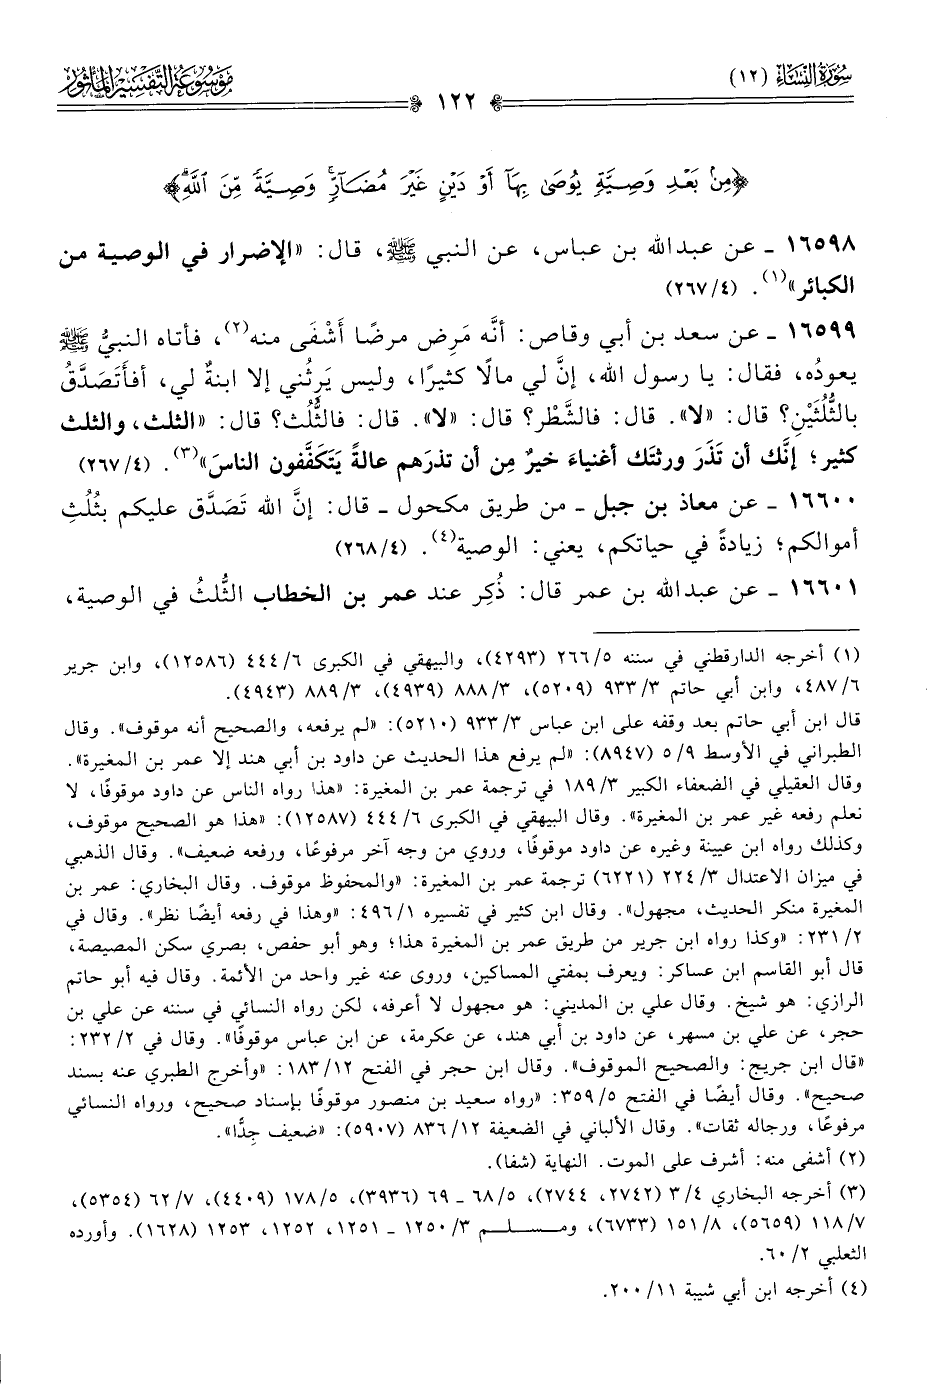 سُورَةُ النِّسَاءِ (١٢)
١٢٢
مَوْسُوعَةُ التَّفْسِيرِ المَأْثُورِ
﴿مِنۢ بَعْدِ وَصِيَّةٖ يُوصَىٰ بِهَآ أَوْ دَيْنٍ غَيْرَ مُضَآرّٖۚ وَصِيَّةٗ مِّنَ ٱللَّهِۗ﴾
١٦٥٩٨ ـ عن عبدالله بن عباس، عن النبي ﷺ، قال: «الإضرار في الوصية من
الكبائر»(١). (٢٦٧/٤)
١٦٥٩٩ ـ عن سعد بن أبي وقاص: أنَّه مَرِض مرضًا أَشْفَى منه(٢)، فأتاه النبيُّ ﷺ
يعودُه، فقال: يا رسول الله، إنَّ لي مالًا كثيرًا، وليس يَرِثُني إلا ابنةٌ لي، أفأَتَصَدَّقُ
بالثُّلُثَيْنِ؟ قال: «لا». قال: فالشَّطْر؟ قال: «لا». قال: فالثُّلُث؟ قال: «الثلث، والثلث
كثير؛ إنَّك أن تَذَرَ ورثتَك أغنياءَ خيرٌ مِن أن تذرَهم عالةً يَتَكَفَّفون الناسَ»(٣). (٢٦٧/٤)
١٦٦٠٠ ـ عن معاذ بن جبل ـ من طريق مكحول ـ قال: إنَّ الله تَصَدَّق عليكم بثُلُثِ
أموالكم؛ زيادةً في حياتكم، يعني: الوصية(٤). (٢٦٨/٤)
١٦٦٠١ ـ عن عبدالله بن عمر قال: ذُكِر عند عمر بن الخطاب الثُّلثُ في الوصية،
(١) أخرجه الدارقطني في سننه ٢٦٦/٥ (٤٢٩٣)، والبيهقي في الكبرى ٤٤٤/٦ (١٢٥٨٦)، وابن جرير
٤٨٧/٦، وابن أبي حاتم ٩٣٣/٣ (٥٢٠٩)، ٨٨٨/٣ (٤٩٣٩)، ٨٨٩/٣ (٤٩٤٣).
قال ابن أبي حاتم بعد وقفه على ابن عباس ٩٣٣/٣ (٥٢١٠): «لم يرفعه، والصحيح أنه موقوف». وقال
الطبراني في الأوسط ٥/٩ (٨٩٤٧): «لم يرفع هذا الحديث عن داود بن أبي هند إلا عمر بن المغيرة».
وقال العقيلي في الضعفاء الكبير ١٨٩/٣ في ترجمة عمر بن المغيرة: «هذا رواه الناس عن داود موقوفًا، لا
نعلم رفعه غير عمر بن المغيرة». وقال البيهقي في الكبرى ٤٤٤/٦ (١٢٥٨٧): «هذا هو الصحيح موقوف،
وكذلك رواه ابن عيينة وغيره عن داود موقوفًا، وروي من وجه آخر مرفوعًا، ورفعه ضعيف». وقال الذهبي
في ميزان الاعتدال ٢٢٤/٣ (٦٢٢١) ترجمة عمر بن المغيرة: «والمحفوظ موقوف. وقال البخاري: عمر بن
المغيرة منكر الحديث، مجهول». وقال ابن كثير في تفسيره ٤٩٦/١: «وهذا في رفعه أيضًا نظر». وقال في
٢٣١/٢: «وكذا رواه ابن جرير من طريق عمر بن المغيرة هذا؛ وهو أبو حفص، بصري سكن المصيصة،
قال أبو القاسم ابن عساكر: ويعرف بمفتي المساكين، وروى عنه غير واحد من الأئمة. وقال فيه أبو حاتم
الرازي: هو شيخ. وقال علي بن المديني: هو مجهول لا أعرفه، لكن رواه النسائي في سننه عن علي بن
حجر، عن علي بن مسهر، عن داود بن أبي هند، عن عكرمة، عن ابن عباس موقوفًا». وقال في ٢٣٢/٢:
«قال ابن جريج: والصحيح الموقوف». وقال ابن حجر في الفتح ١٨٣/١٢: «وأخرج الطبري عنه بسند
صحيح». وقال أيضًا في الفتح ٣٥٩/٥: «رواه سعيد بن منصور موقوفًا بإسناد صحيح، ورواه النسائي
مرفوعًا، ورجاله ثقات». وقال الألباني في الضعيفة ٨٣٦/١٢ (٥٩٠٧): «ضعيف جِدًّا».
(٢) أشفى منه: أشرف على الموت. النهاية (شفا).
(٣) أخرجه البخاري ٣/٤ (٢٧٤٢، ٢٧٤٤)، ٦٨/٥ ـ ٦٩ (٣٩٣٦)، ١٧٨/٥ (٤٤٠٩)، ٦٢/٧ (٥٣٥٤)،
١١٨/٧ (٥٦٥٩)، ١٥١/٨ (٦٧٣٣)، ومسلم ١٢٥٠/٣ ـ ١٢٥١، ١٢٥٢، ١٢٥٣ (١٦٢٨). وأورده
الثعلبي ٦٠/٢.
(٤) أخرجه ابن أبي شيبة ٢٠٠/١١.